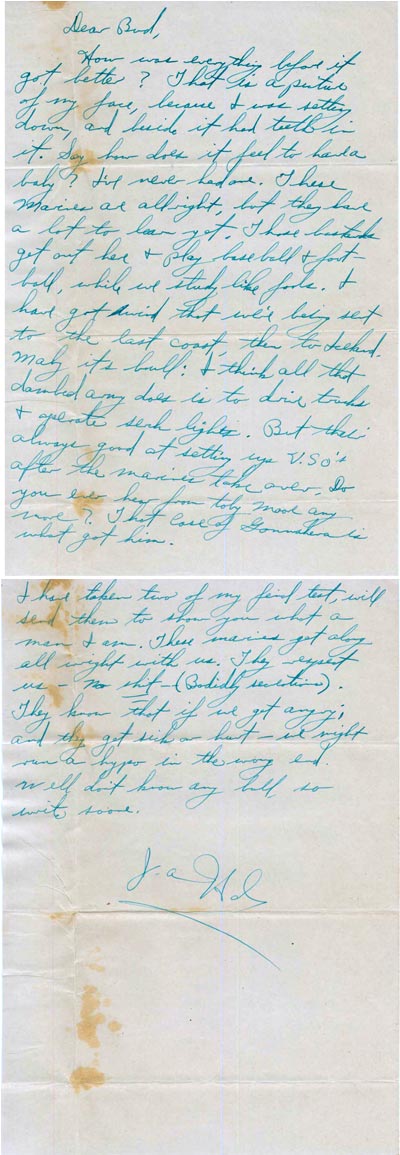 Dear Bud,
How was everything before it
got better? That is a picture
of my face, because I was setting
down, and beside it had teeth in
it. Say how does it feel to have a
baby? I've never had one. These
Marines are allright, but they have
a lot to learn yet. Those bastards
get out here & play baseball & foot-
ball, while we study like fools. I
have got wind that we're being sent
to the east coast, then to
Maby it's bull: I think all that
dambed army does is to drive trucks
& operate serch lights. But their
always good at setting up U.S.O's
after the marines take over. Do
you ever hear from toby Moore any
more? That case of Gonnahera is
what got him.
I have taken two of my final test, will
send them to show you what a
man I am. These marines get along
all wright with us. They respect
us – no shit (Bodidly secretions).
They know that if we get angry;
and they get sick or hurt – we might
run a hypo in the wrong end.
Well don't know any bull, so
write soone.